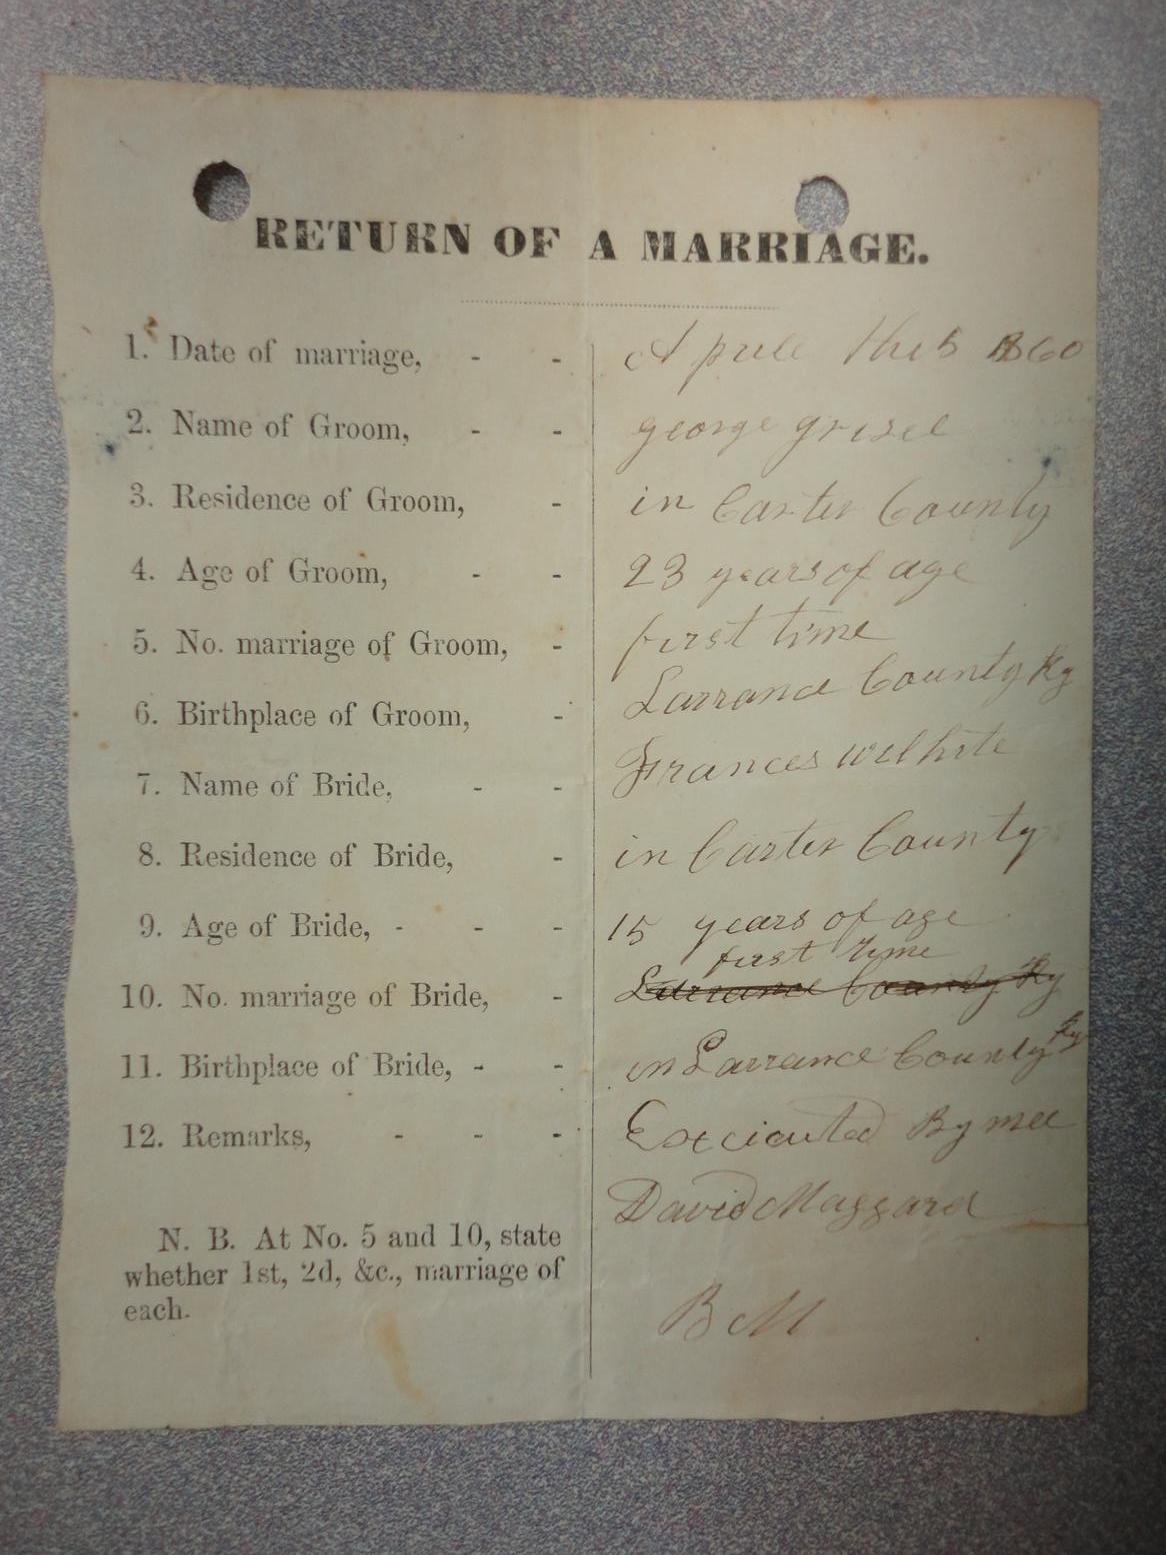 RETURN OF A MARRIAGE.
1. Date of marriage, - - Aprile the 5 1860
2. Name of Groom, - - george grisel
3. Residence of Groom, - in Carter County
4. Age of Groom, - - 23 years of age
5. No. marriage of Groom, - first time
6. Birthplace of Groom, - Larrance County Ky
7. Name of Bride, - - Frances wilhite
8. Residence of Bride, - in Carter County
9. Age of Bride, - - - 15 years of age
first time
10. No. marriage of Bride, - Larrance County Ky
11. Birthplace of Bride, - - in Larrance County Ky
12. Remarks, - - - Excicuted By mee
David Maggard
N. B. At No. 5 and 10, state
whether 1st, 2d, &c., marriage of
each.
B M